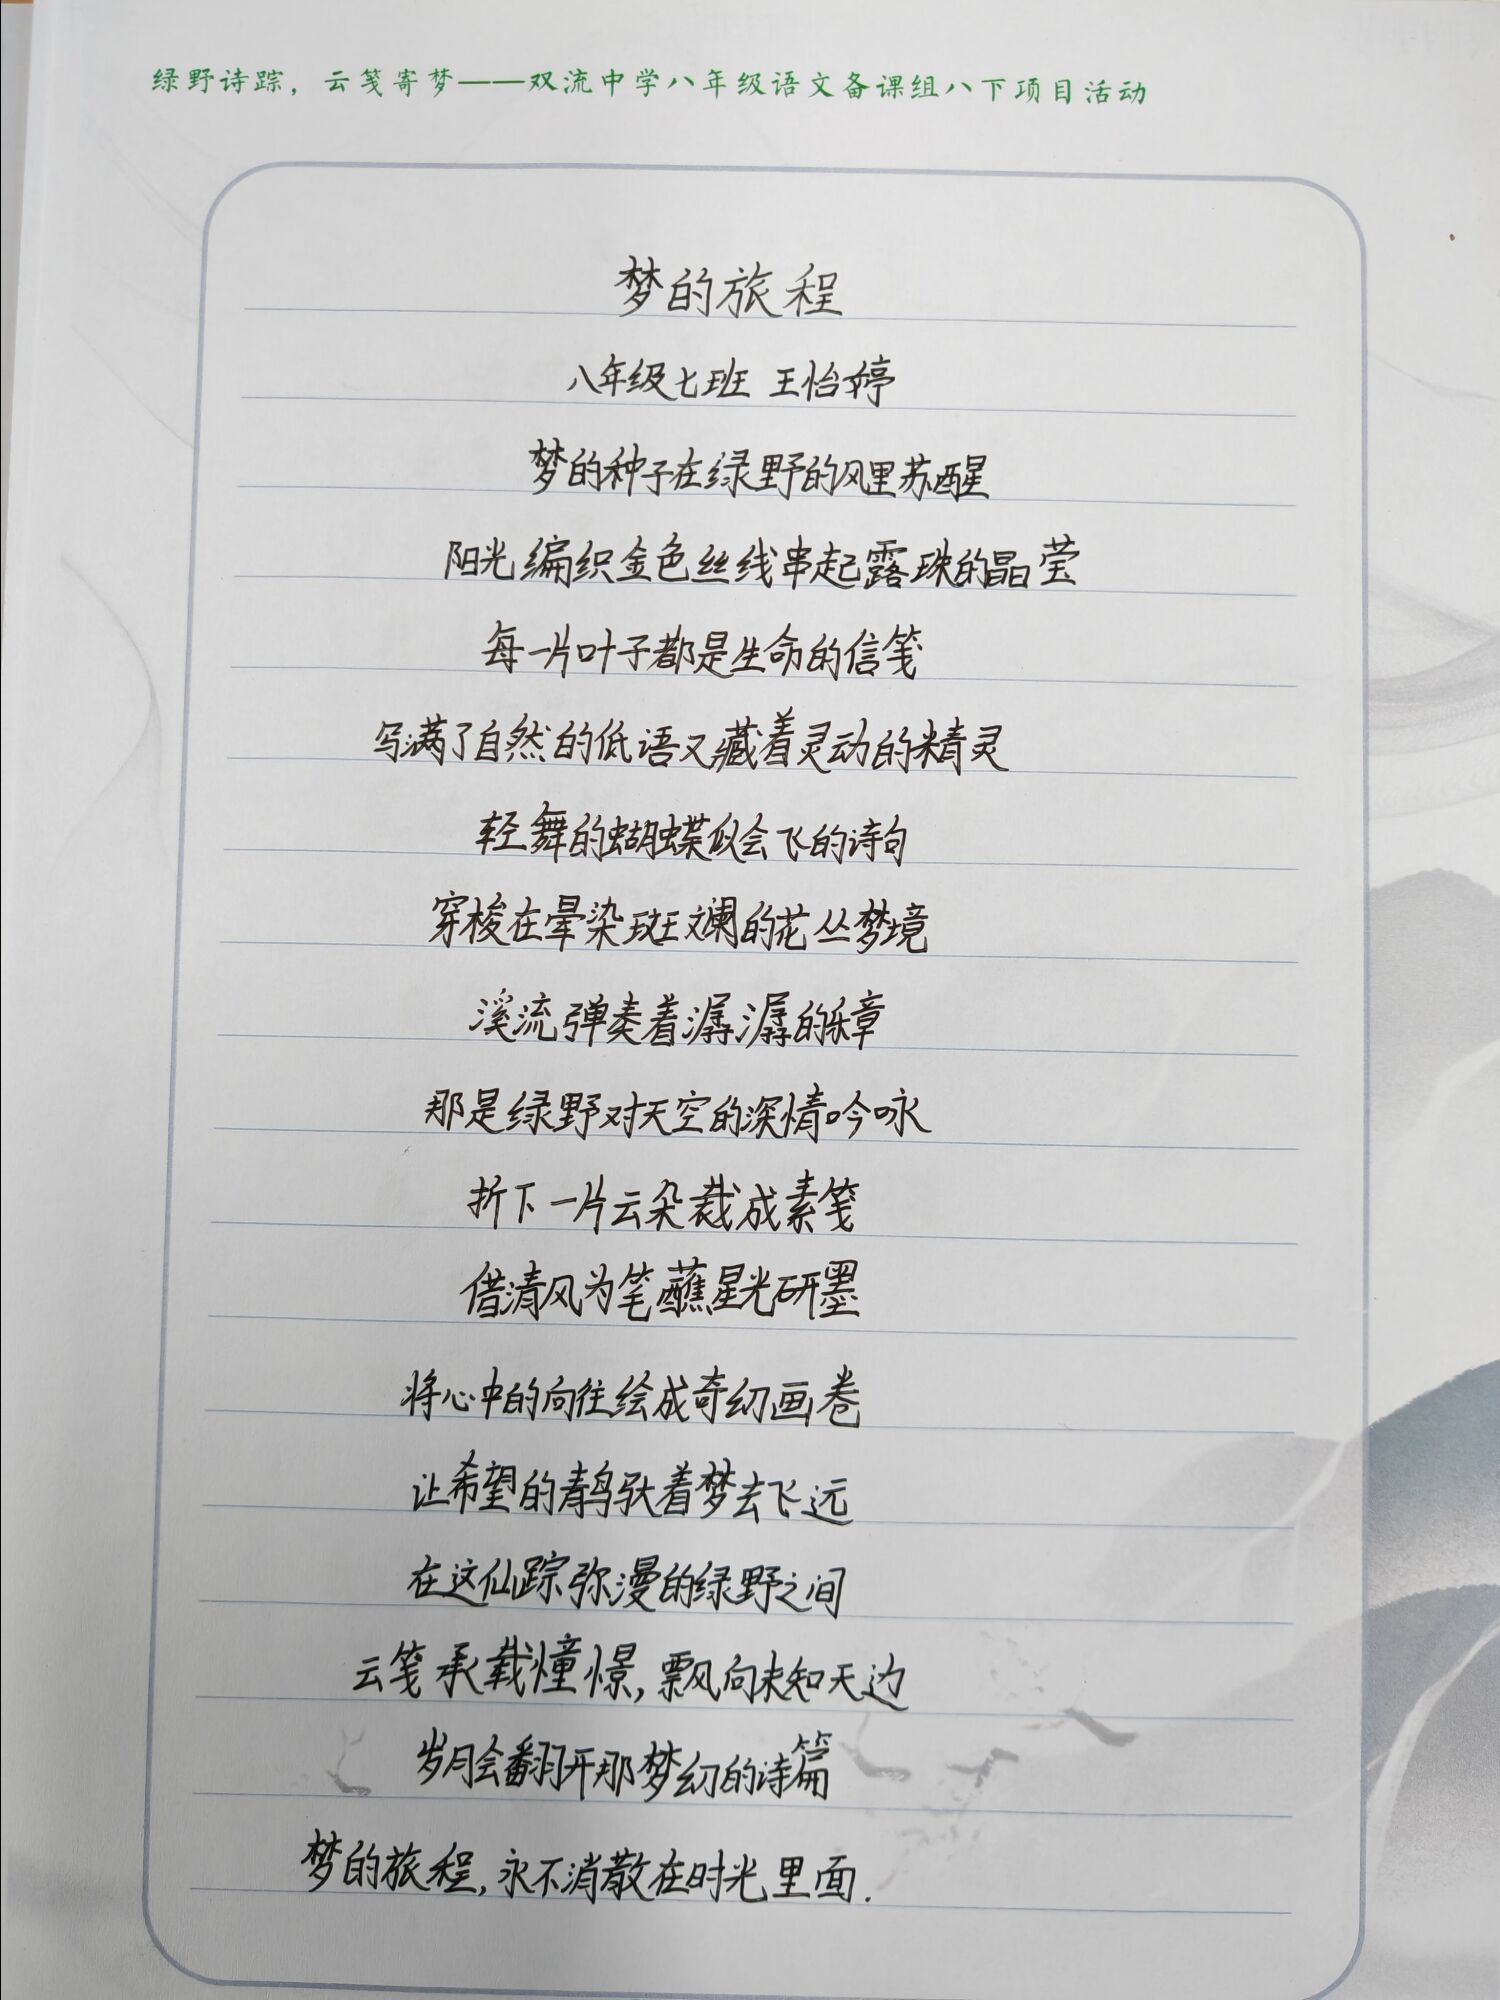 绿野诗踪，云笺寄梦——双流中学八年级语文备课组八下项目活动
梦的旅程
八年级七班 王怡婷
梦的种子在绿野的风里苏醒
阳光编织金色丝线串起露珠的晶莹
每一片叶子都是生命的信笺
写满了自然的低语又藏着灵动的精灵
轻舞的蝴蝶似会飞的诗句
穿梭在晕染斑斓的花丛梦境
溪流弹奏着潺潺的乐章
那是绿野对天空的深情吟咏
折下一片云朵裁成素笺
借清风为笔蘸星光研墨
将心中的向往绘成奇幻画卷
让希望的青鸟驮着梦去飞远
在这仙踪弥漫的绿野之间
云笺承载憧憬,飘向未知天边
岁月会翻开那梦幻的诗篇
梦的旅程,永不消散在时光里面.